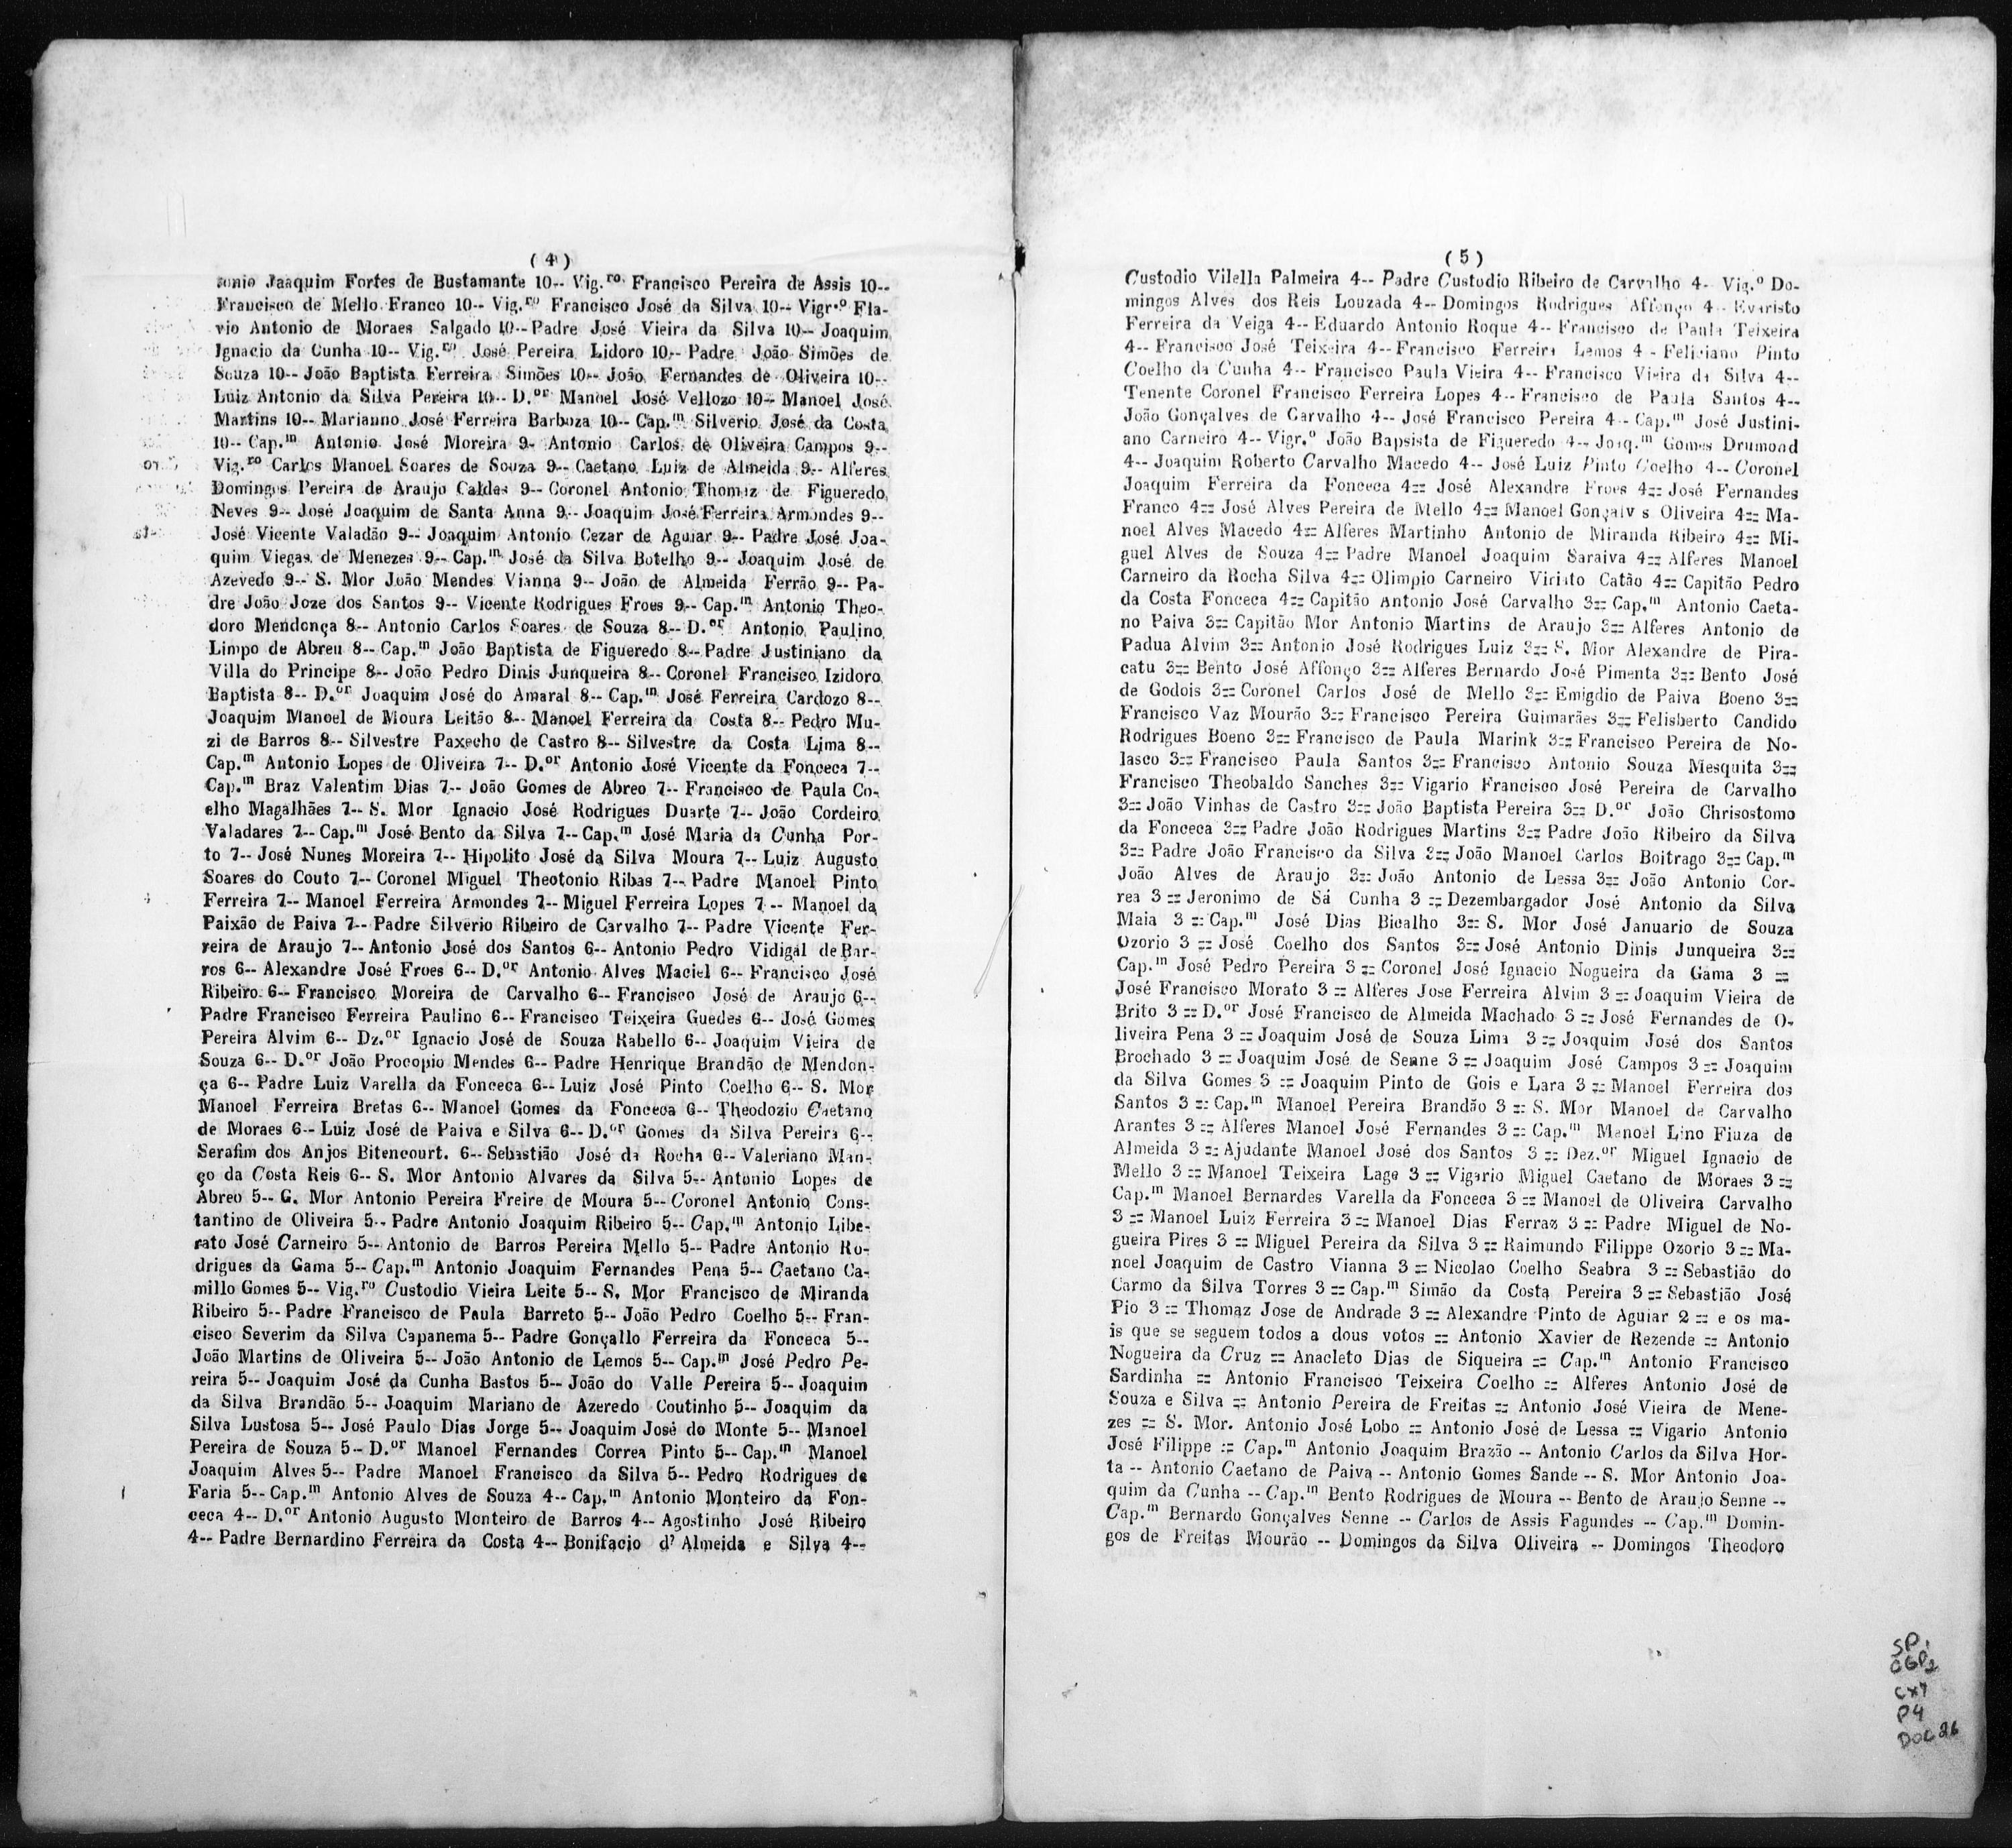 ( 4 )
tonio Jaaquim Fortes de Bustamante 10-- Vig.ro Francisco Pereira de Assis 10--
Francisco de Mello Franco 10-- Vig.ro Francisco José da Silva 10-- Vigr.o Fla-
vio Antonio de Moraes Salgado 10-- Padre José Vieira da Silva 10-- Joaquim
Ignacio da Cunha 10-- Vig.ro José Pereira Lidoro 10-- Padre João Simões de
Souza 10-- João Baptista Ferreira Simões 10-- João Fernandes de Oliveira 10--
Luiz Antonio da Silva Pereira 10-- D.or Manoel José Vellozo 10-- Manoel José
Martins 10-- Marianno José Ferreira Barboza 10-- Cap.m Silverio José da Costa
10-- Cap.m Antonio José Moreira 9- Antonio Carlos de Oliveira Campos 9--
Vig.ro Carlos Manoel Soares de Souza 9-- Caetano Luiz de Almeida 9-- Alferes
Domingos Pereira de Araujo Caldas 9-- Coronel Antonio Thomaz de Figueredo
Neves 9-- José Joaquim de Santa Anna 9-- Joaquim José Ferreira Armondes 9--
José Vicente Valadão 9-- Joaquim Antonio Cezar de Aguiar 9-- Padre José Joa-
quim Viegas de Menezes 9-- Cap.m José da Silva Botelho 9-- Joaquim José de
Azevedo 9-- S. Mor João Mendes Vianna 9-- João de Almeida Ferrão 9-- Pa-
dre João Joze dos Santos 9-- Vicente Rodrigues Froes 9-- Cap.m Antonio Theo-
doro Mendonça 8-- Antonio Carlos Soares de Souza 8-- D.or Antonio Paulino
Limpo de Abreu 8-- Cap.m João Baptista de Figueredo 8-- Padre Justiniano da
Villa do Principe 8-- João Pedro Dinis Junqueira 8-- Coronel Francisco Izidoro
Baptista 8-- D.or Joaquim José do Amaral 8-- Cap.m José Ferreira Cardozo 8--
Joaquim Manoel de Moura Leitão 8-- Manoel Ferreira da Costa 8-- Pedro Mu-
zi de Barros 8-- Silvestre Paxecho de Castro 8-- Silvestre da Costa Lima 8--
Cap.m Antonio Lopes de Oliveira 7-- D.or Antonio José Vicente da Fonceca 7--
Cap.m Braz Valentim Dias 7-- João Gomes de Abreo 7-- Francisco de Paula Co-
elho Magalhães 7-- S. Mor Ignacio José Rodrigues Duarte 7-- João Cordeiro
Valadares 7-- Cap.m José Bento da Silva 7-- Cap.m José Maria da Cunha Por-
to 7-- José Nunes Moreira 7-- Hipolito José da Silva Moura 7-- Luiz Augusto
Soares do Couto 7-- Coronel Miguel Theotonio Ribas 7-- Padre Manoel Pinto
Ferreira 7-- Manoel Ferreira Armondes 7-- Miguel Ferreira Lopes 7 -- Manoel da
Paixão de Paiva 7-- Padre Silverio Ribeiro de Carvalho 7-- Padre Vicente Fer-
reira de Araujo 7-- Antonio José dos Santos 6-- Antonio Pedro Vidigal de Bar-
ros 6-- Alexandre José Froes 6-- D.or Antonio Alves Maciel 6-- Francisco José
Ribeiro 6-- Francisco Moreira de Carvalho 6-- Francisco José de Araujo 6--
Padre Francisco Ferreira Paulino 6-- Francisco Teixeira Guedes 6-- José Gomes
Pereira Alvim 6-- Dz.or Ignacio José de Souza Rabello 6-- Joaquim Vieira de
Souza 6-- D.or João Procopio Mendes 6-- Padre Henrique Brandão de Mendon-
ça 6-- Padre Luiz Varella da Fonceca 6-- Luiz José Pinto Coelho 6-- S. Mor
Manoel Ferreira Bretas 6-- Manoel Gomes da Fonceca 6-- Theodozio Caetano
de Moraes 6-- Luiz José de Paiva e Silva 6-- D.or Gomes da Silva Pereira 6--
Serafim dos Anjos Bitencourt. 6-- Sebastião José da Rocha 6-- Valeriano Man-
ço da Costa Reis 6-- S. Mor Antonio Alvares da Silva 5-- Antonio Lopes de
Abreo 5-- G. Mor Antonio Pereira Freire de Moura 5-- Coronel Antonio Cons-
tantino de Oliveira 5-- Padre Antonio Joaquim Ribeiro 5-- Cap.m Antonio Libe-
rato José Carneiro 5-- Antonio de Barros Pereira Mello 5-- Padre Antonio Ro-
drigues da Gama 5-- Cap.m Antonio Joaquim Fernandes Pena 5-- Caetano Ca-
millo Gomes 5-- Vig.ro Custodio Vieira Leite 5-- S. Mor Francisco de Miranda
Ribeiro 5-- Padre Francisco de Paula Barreto 5-- João Pedro Coelho 5-- Fran-
cisco Severim da Silva Capanema 5-- Padre Gonçallo Ferreira da Fonceca 5--
João Martins de Oliveira 5-- João Antonio de Lemos 5-- Cap.m José Pedro Pe-
reira 5-- Joaquim José da Cunha Bastos 5-- João do Valle Pereira 5-- Joaquim
da Silva Brandão 5-- Joaquim Mariano de Azeredo Coutinho 5-- Joaquim da
Silva Lustosa 5-- José Paulo Dias Jorge 5-- Joaquim José do Monte 5-- Manoel
Pereira de Souza 5-- D.or Manoel Fernandes Correa Pinto 5-- Cap.m Manoel
Joaquim Alves 5-- Padre Manoel Francisco da Silva 5-- Pedro Rodrigues de
Faria 5-- Cap.m Antonio Alves de Souza 4-- Cap.m Antonio Monteiro da Fon-
ceca 4-- D.or Antonio Augusto Monteiro de Barros 4-- Agostinho José Ribeiro
4-- Padre Bernardino Ferreira da Costa 4-- Bonifacio d' Almeida e Silva 4--
( 5 )
Custodio Vilella Palmeira 4-- Padre Custodio Ribeiro de Carvalho 4- Vig.o Do-
mingos Alves dos Reis Louzada 4-- Domingos Rodrigues Affonço 4-- Evaristo
Ferreira da Veiga 4-- Eduardo Antonio Roque 4-- Francisco de Paula Teixeira
4-- Francisco José Teixeira 4-- Francisco Ferreira Lemos 4 - Feliciano Pinto
Coelho da Cunha 4-- Francisco Paula Vieira 4-- Francisco Vieira da Silva 4--
Tenente Coronel Francisco Ferreira Lopes 4-- Francisco de Paula Santos 4--
João Gonçalves de Carvalho 4-- José Francisco Pereira 4-- Cap.m José Justini-
ano Carneiro 4-- Vigr.o João Bapsista de Figueredo 4-- Joaq.m Gomes Drumond
4-- Joaquim Roberto Carvalho Macedo 4-- José Luiz Pinto Coelho 4-- Coronel
Joaquim Ferreira da Fonceca 4== José Alexandre Froes 4== José Fernandes
Franco 4== José Alves Pereira de Mello 4== Manoel Gonçalv s Oliveira 4== Ma-
noel Alves Macedo 4== Alferes Martinho Antonio de Miranda Ribeiro 4== Mi-
guel Alves de Souza 4== Padre Manoel Joaquim Saraiva 4== Alferes Manoel
Carneiro da Rocha Silva 4== Olimpio Carneiro Viriato Catão 4== Capitão Pedro
da Costa Fonceca 4== Capitão Antonio José Carvalho 3== Cap.m Antonio Caeta-
no Paiva 3== Capitão Mor Antonio Martins de Araujo 3== Alferes Antonio de
Padua Alvim 3== Antonio José Rodrigues Luiz 3== S. Mor Alexandre de Pira-
catu 3== Bento José Affonço 3== Alferes Bernardo José Pimenta 3== Bento José
de Godois 3== Coronel Carlos José de Mello 3== Emigdio de Paiva Boeno 3==
Francisco Vaz Mourão 3== Francisco Pereira Guimarães 3== Felisberto Candido
Rodrigues Boeno 3== Francisco de Paula Marink 3== Francisco Pereira de No-
lasco 3== Francisco Paula Santos 3== Francisco Antonio Souza Mesquita 3==
Francisco Theobaldo Sanches 3== Vigario Francisco José Pereira de Carvalho
3== João Vinhas de Castro 3== João Baptista Pereira 3== D.or João Chrisostomo
da Fonceca 3== Padre João Rodrigues Martins 3== Padre João Ribeiro da Silva
3== Padre João Francisco da Silva 3== João Manoel Carlos Boitrago 3== Cap.m
João Alves de Araujo 3== João Antonio de Lessa 3== João Antonio Cor-
rea 3 == Jeronimo de Sá Cunha 3 == Dezembargador José Antonio da Silva
Maia 3 == Cap.m José Dias Bicalho 3== S. Mor José Januario de Souza
Ozorio 3 == José Coelho dos Santos 3== José Antonio Dinis Junqueira 3==
Cap.m José Pedro Pereira 3 == Coronel José Ignacio Nogueira da Gama 3 ==
José Francisco Morato 3 == Alferes Jose Ferreira Alvim 3 == Joaquim Vieira de
Brito 3 == D.or José Francisco de Almeida Machado 3 == José Fernandes de O-
liveira Pena 3 == Joaquim José de Souza Lima 3 == Joaquim José dos Santos
Brochado 3 == Joaquim José de Senne 3 == Joaquim José Campos 3 == Joaquim
da Silva Gomes 3 == Joaquim Pinto de Gois e Lara 3 == Manoel Ferreira dos
Santos 3 == Cap.m Manoel Pereira Brandão 3 == S. Mor Manoel de Carvalho
Arantes 3 == Alferes Manoel José Fernandes 3 == Cap.m Manoel Lino Fiuza de
Almeida 3 == Ajudante Manoel José dos Santos 3 == Dez.or Miguel Ignacio de
Mello 3 == Manoel Teixeira Lage 3 == Vigario Miguel Caetano de Moraes 3 ==
Cap.m Manoel Bernardes Varella da Fonceca 3 == Manoel de Oliveira Carvalho
3 == Manoel Luiz Ferreira 3 == Manoel Dias Ferraz 3 == Padre Miguel de No-
gueira Pires 3 == Miguel Pereira da Silva 3 == Raimundo Filippe Ozorio 3 == Ma-
noel Joaquim de Castro Vianna 3 == Nicolao Coelho Seabra 3 == Sebastião do
Carmo da Silva Torres 3 == Cap.m Simão da Costa Pereira 3 == Sebastião José
Pio 3 == Thomaz Jose de Andrade 3 == Alexandre Pinto de Aguiar 2 == e os ma-
is que se seguem todos a dous votos == Antonio Xavier de Rezende == Antonio
Nogueira da Cruz == Anacleto Dias de Siqueira == Cap.m Antonio Francisco
Sardinha == Antonio Francisco Teixeira Coelho == Alferes Antonio José de
Souza e Silva == Antonio Pereira de Freitas == Antonio José Vieira de Mene-
zes == S. Mor. Antonio José Lobo == Antonio José de Lessa == Vigario Antonio
José Filippe == Cap.m Antonio Joaquim Brazão -- Antonio Carlos da Silva Hor-
ta -- Antonio Caetano de Paiva -- Antonio Gomes Sande -- S. Mor Antonio Joa-
quim da Cunha -- Cap.m Bento Rodrigues de Moura -- Bento de Araujo Senne --
Cap.m Bernardo Gonçalves Senne -- Carlos de Assis Fagundes -- Cap.m Domin-
gos de Freitas Mourão -- Domingos da Silva Oliveira -- Domingos Theodoro
SP
CGP2
CX7
P4
DOC 26